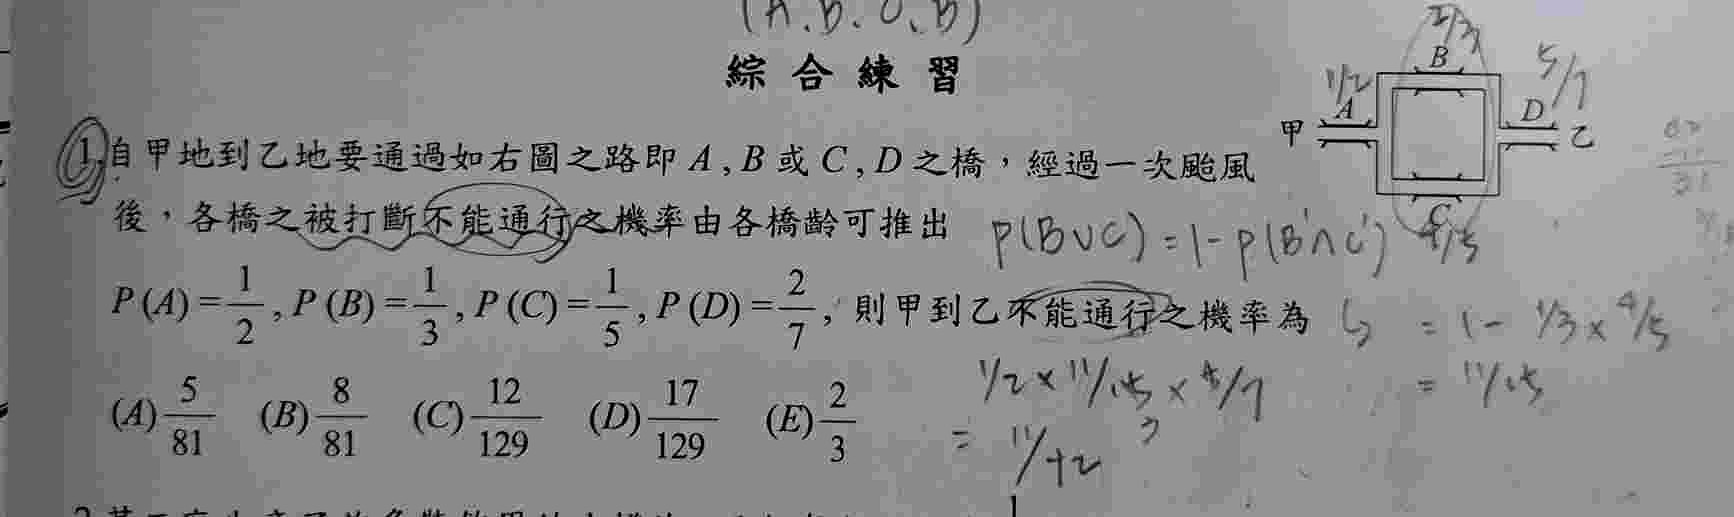 (A.B.C.D)
綜合練習
1.自甲地到乙地要通過如右圖之路即A,B或C,D之橋，經過一次颱風
後，各橋之被打斷不能通行之機率由各橋齡可推出
P(A)=1/2, P(B)=1/3, P(C)=1/5, P(D)=2/7, 則甲到乙不能通行之機率為
(A) 5/81 (B) 8/81 (C) 12/129 (D) 17/129 (E) 2/3
2/3
B
1/2
A
5/7
D
甲
乙
C
4/5
P(B∪C)=1-P(B'∩C')
= 1- 1/3 x 4/5
= 11/15
1/2 x 11/15 x 5/7
3
= 11/42